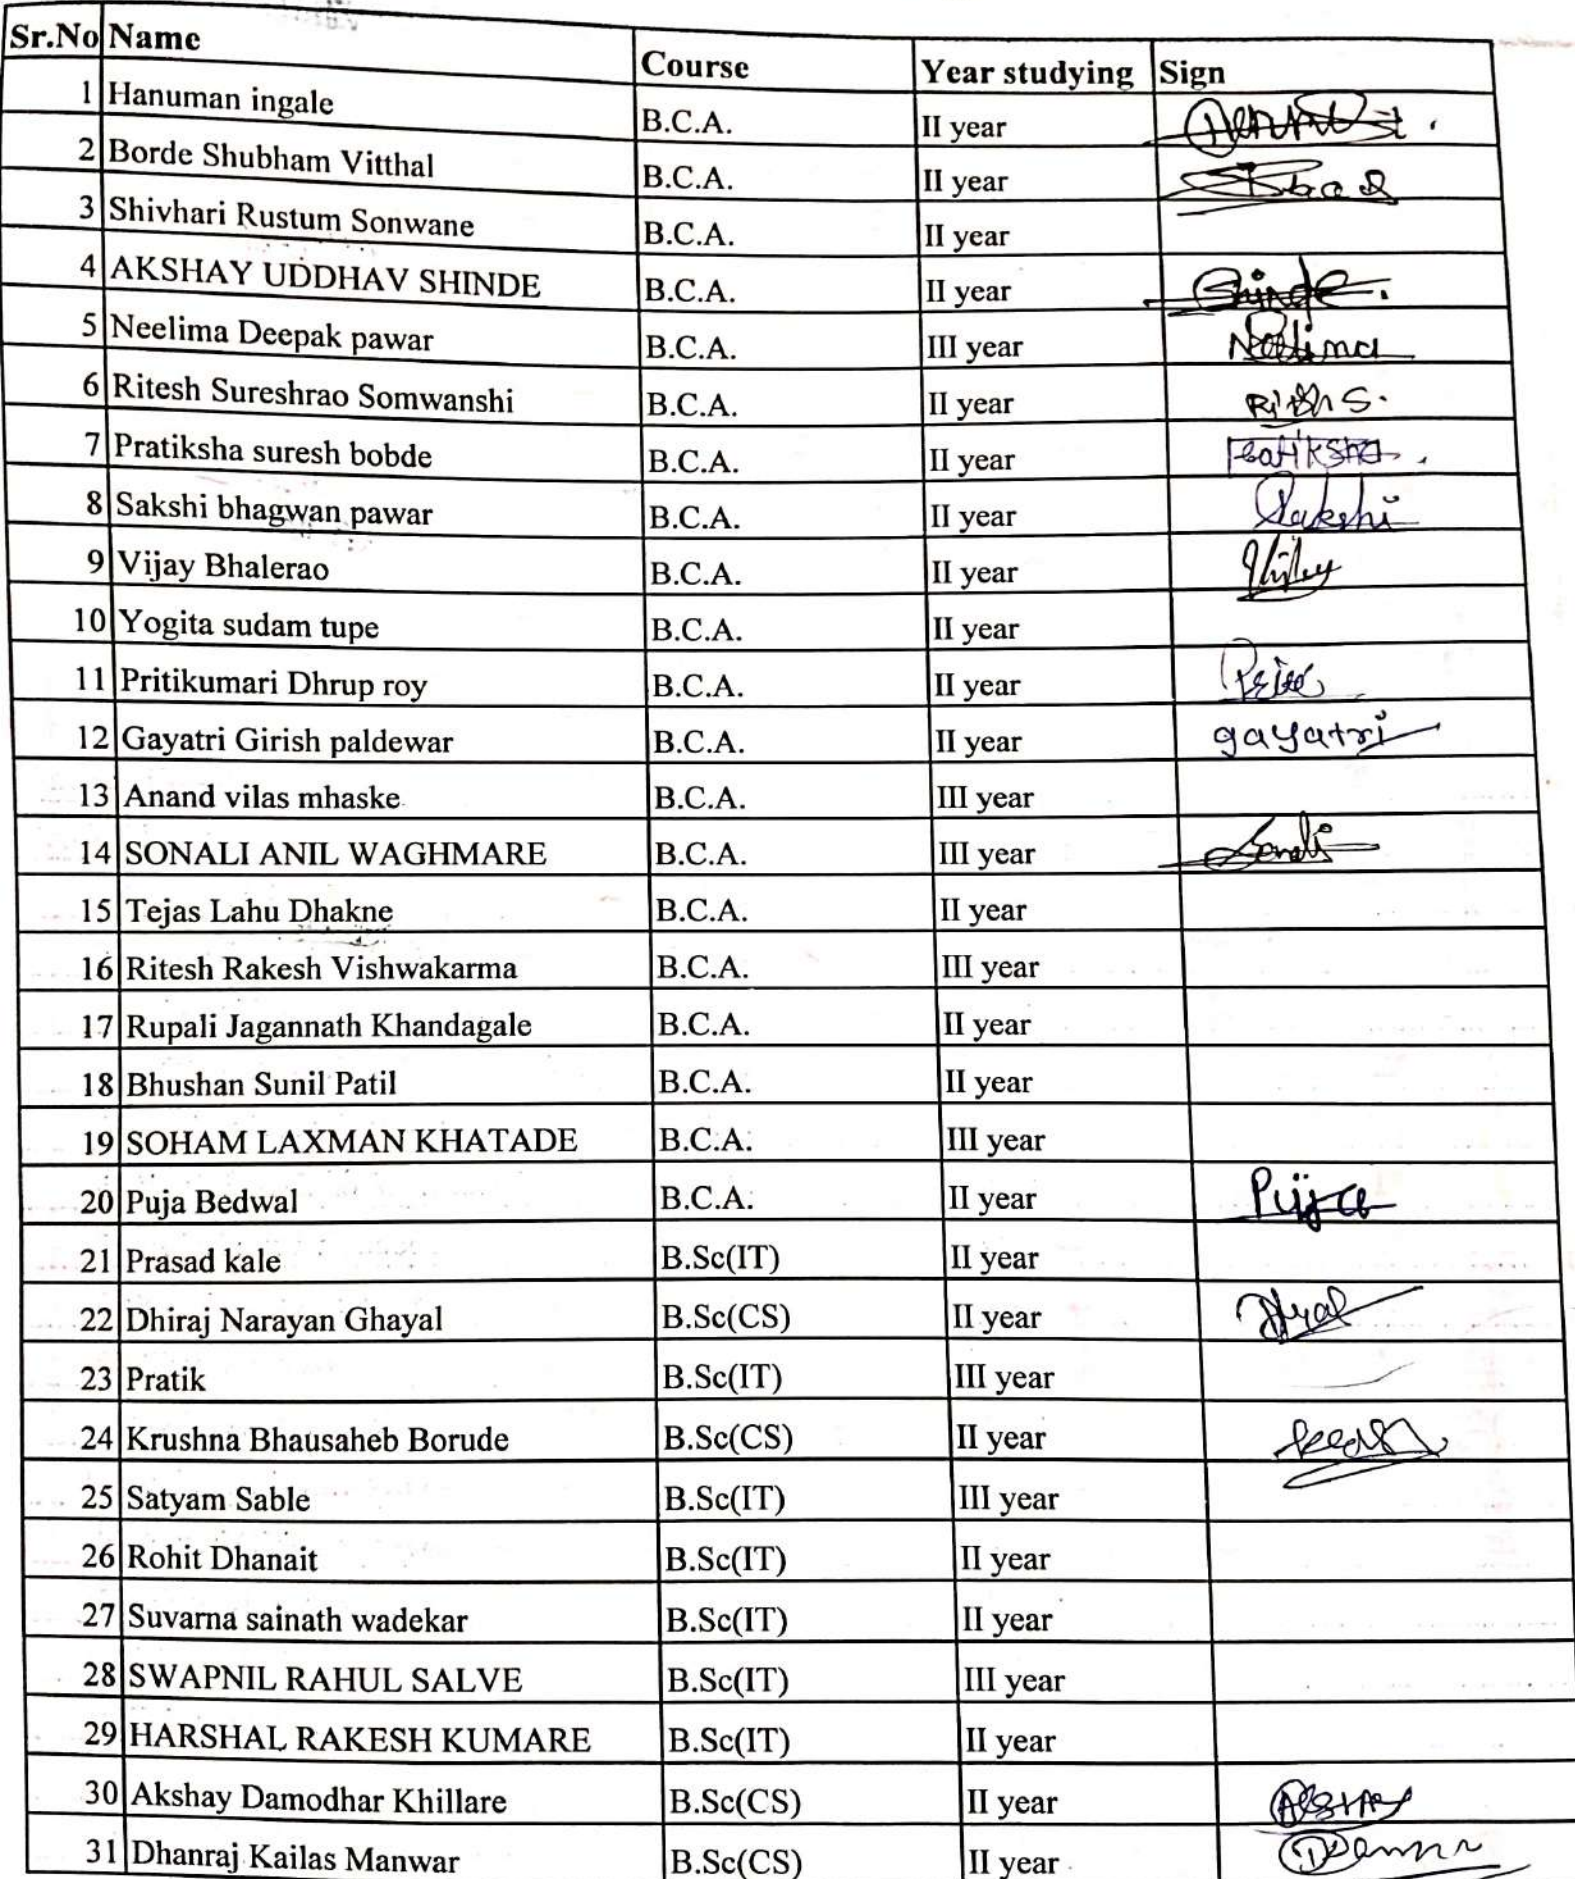 Sr.No Name Course Year studying Sign
1 Hanuman ingale B.C.A. II year
2 Borde Shubham Vitthal B.C.A. II year
3 Shivhari Rustum Sonwane B.C.A. II year
4 AKSHAY UDDHAV SHINDE B.C.A. II year Shinde.
5 Neelima Deepak pawar B.C.A. III year Neelima
6 Ritesh Sureshrao Somwanshi B.C.A. II year
7 Pratiksha suresh bobde B.C.A. II year Pratiksha.
8 Sakshi bhagwan pawar B.C.A. II year Sakshi
9 Vijay Bhalerao B.C.A. II year
10 Yogita sudam tupe B.C.A. II year
11 Pritikumari Dhrup roy B.C.A. II year
12 Gayatri Girish paldewar B.C.A. II year gayatri
13 Anand vilas mhaske B.C.A. III year
14 SONALI ANIL WAGHMARE B.C.A. III year Sonali
15 Tejas Lahu Dhakne B.C.A. II year
16 Ritesh Rakesh Vishwakarma B.C.A. III year
17 Rupali Jagannath Khandagale B.C.A. II year
18 Bhushan Sunil Patil B.C.A. II year
19 SOHAM LAXMAN KHATADE B.C.A. III year
20 Puja Bedwal B.C.A. II year Puja
21 Prasad kale B.Sc(IT) II year
22 Dhiraj Narayan Ghayal B.Sc(CS) II year
23 Pratik B.Sc(IT) III year
24 Krushna Bhausaheb Borude B.Sc(CS) II year
25 Satyam Sable B.Sc(IT) III year
26 Rohit Dhanait B.Sc(IT) II year
27 Suvarna sainath wadekar B.Sc(IT) II year
28 SWAPNIL RAHUL SALVE B.Sc(IT) III year
29 HARSHAL RAKESH KUMARE B.Sc(IT) II year
30 Akshay Damodhar Khillare B.Sc(CS) II year
31 Dhanraj Kailas Manwar B.Sc(CS) II year